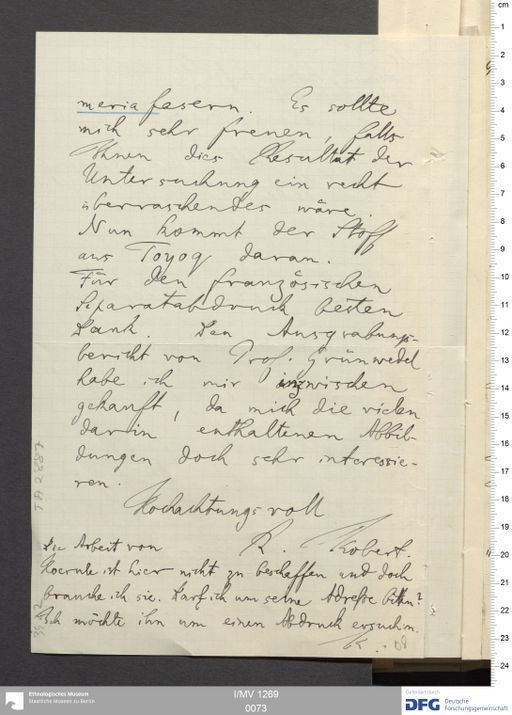 meriafasern. Es sollte
mich sehr freuen, falls
Ihnen dies Resultat der
Untersuchung ein recht
überraschendes wäre.
Nun kommt der Stoff
aus Toyoq daran.
Für den französischen
Separatabdruck besten
Dank. Den Ausgrabungs-
bericht von Prof. Grünwedel
habe ich mir inzwischen
gekauft, da mich die vielen
darin enthaltenen Abbil-
dungen doch sehr interessie-
ren.
Hochachtungsvoll
R. Kobert.
Die Arbeit von
Hoernle ist hier nicht zu beschaffen und doch
brauche ich sie. Darf ich um seine Adresse bitten?
Ich möchte ihn um einen Abdruck ersuchen.
TA 2887
cm
1
2
3
4
5
6
7
8
9
10
11
12
13
14
15
16
17
18
19
20
21
22
23
24
Ethnologisches Museum
Staatliche Museen zu Berlin
I/MV 1269
0073
Gefördert durch
DFG
Deutsche
Forschungsgemeinschaft